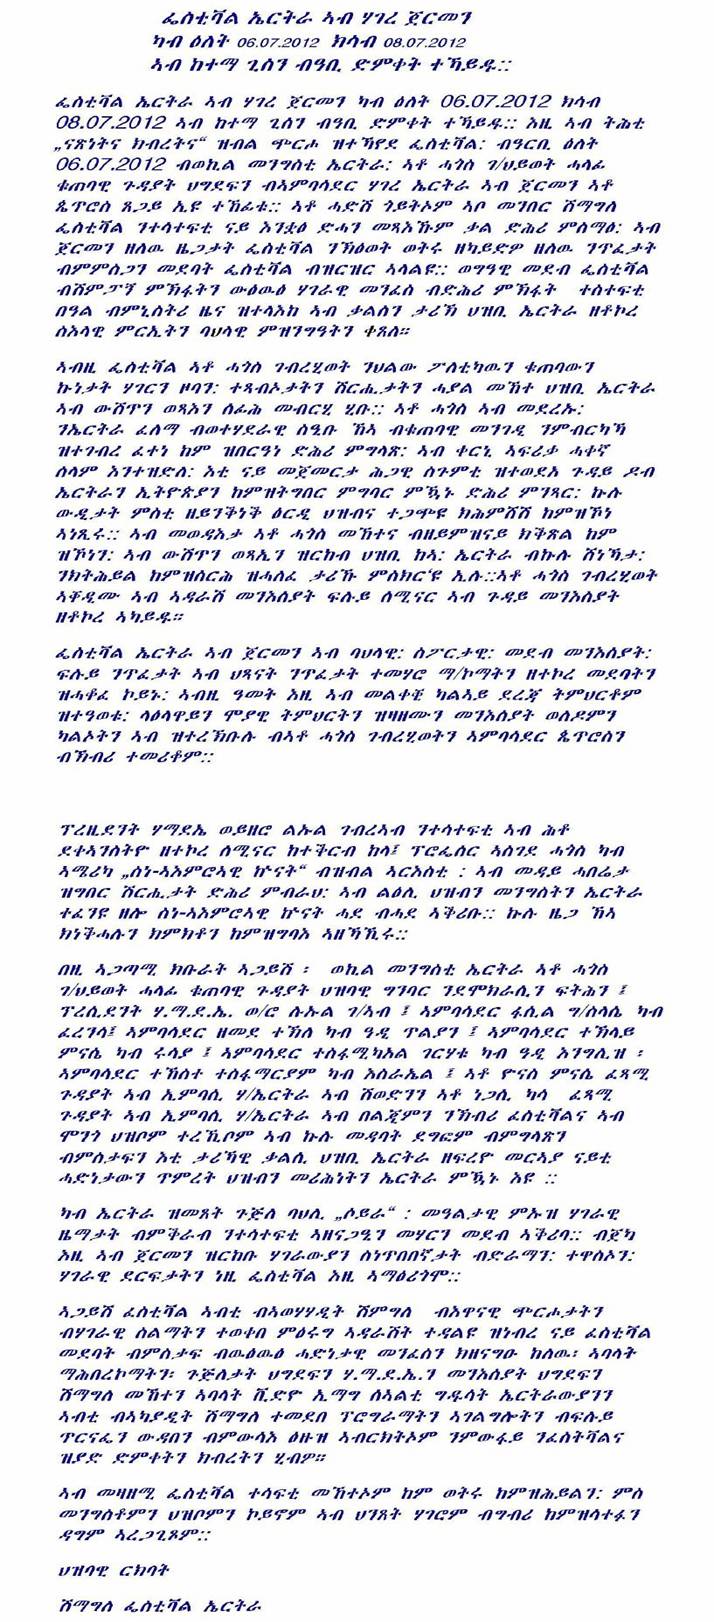 ፌስቲቫል ኤርትራ ኣብ ሃገረ ጀርመን
ካብ ዕለት 06.07.2012 ክሳብ 08.07.2012
ኣብ ከተማ ጊሰን ብዓቢ ድምቀት ተኻይዱ::
ፌስቲቫል ኤርትራ ኣብ ሃገረ ጀርመን ካብ ዕለት 06.07.2012 ክሳብ
08.07.2012 ኣብ ከተማ ጊሰን ብዓቢ ድምቀት ተኻይዱ:: እዚ ኣብ ትሕቲ
„ናጽነትና ክብረትና“ ዝብል ጭርሖ ዝተኻየደ ፌስቲቫል: ብዓርቢ ዕለት
06.07.2012 ብወኪል መንግስቲ ኤርትራ: ኣቶ ሓጎስ ገ/ህይወት ሓላፊ
ቁጠባዊ ጉዳያት ህግደፍን ብኣምባሳደር ሃገረ ኤርትራ ኣብ ጀርመን ኣቶ
ጴጥሮስ ጸጋይ ኢዩ ተኸፊቱ:: ኣቶ ሓድሽ ጎይትኦም ኣቦ መንበር ሽማግለ
ፌስቲቫል ንተሳተፍቲ ናይ እንቋዕ ድሓን መጻእኹም ቃል ድሕሪ ምስማዕ: ኣብ
ጀርመን ዘለዉ ዜጋታት ፌስቲቫል ንኽዕወት ወትሩ ዘካይድዎ ዘለዉ ንጥፈታት
ብምምስጋን መደባት ፌስቲቫል ብዝርዝር ኣሳልዩ:: ወግዓዊ መደብ ፌስቲቫል
ብሽምፓኝ ምኽፋትን ውዕዉዕ ሃገራዊ መንፈስ ብድሕሪ ምኽፋት ተስተፍቲ
በዓል ብምኒስትሪ ዜና ዝተላእከ ኣብ ቃልስን ታሪኽ ህዝቢ ኤርትራ ዘቶኮረ
ስእላዊ ምርኢትን ባህላዊ ምዝንግዓትን ቀጸለ።
ኣብዚ ፌስቲቫል ኣቶ ሓጎስ ገብረሂወት ንህልው ፖለቲካዉን ቁጠባውን
ኩነታት ሃገርን ዞባን: ተጻብኦታትን ሽርሒታትን ሓያል መኸተ ህዝቢ ኤርትራ
ኣብ ውሽጥን ወጻእን ሰፊሕ መብርሂ ሂቡ:: ኣቶ ሓጎስ ኣብ መደረኡ:
ንኤርትራ ፈለማ ብወተሃደራዊ ስዒቡ ኸኣ ብቁጠባዊ መንገዲ ንምብርካኻ
ዝተገብረ ፈተነ ከም ዝበርዓነ ድሕሪ ምግላጽ: ኣብ ቀርኒ ኣፍሪቃ ሓቀኛ
ሰላም እንተዝድለ: እቲ ናይ መጀመርታ ሕጋዊ ስጉምቲ ዝተወደአ ጉዳይ ዶብ
ኤርትራን ኢትዮጵያን ከምዝትግበር ምግባር ምዃኑ ድሕሪ ምንጻር: ኩሉ
ውዲታት ምስቲ ዘይንቕነቕ ዕርዲ ህዝብና ተጋጭዩ ክሕምሽሽ ከምዝኾነ
ኣነጺሩ:: ኣብ መወዳእታ ኣቶ ሓጎስ መኸተና ብዘይምዝናይ ክቅጽል ከም
ዝኾነን: ኣብ ውሽጥን ወጻኢን ዝርከብ ህዝቢ ከኣ: ኤርትራ ብኩሉ ሸነኻታ:
ንክትሕይል ከምዝሰርሕ ዝሓለፈ ታሪኹ ምስክር'ዩ ኢሉ::ኣቶ ሓጎስ ገብረሂወት
ኣቐዲሙ ኣብ ኣዳራሽ መንእሰያት ፍሉይ ሰሚናር ኣብ ጉዳይ መንእሰያት
ዘቶኮረ ኣካይዱ።
ፌስቲቫል ኤርትራ ኣብ ጀርመን ኣብ ባህላዊ: ስፖርታዊ: መደብ መንእሰያት:
ፍሉይ ንጥፈታት ኣብ ህጻናት ንጥፈታት ተመሃሮ ማ/ኮማትን ዘተኮረ መደባትን
ዝሓቆፈ ኮይኑ: ኣብዚ ዓመት እዚ ኣብ መልቀቒ ካልኣይ ደረጃ ትምህርቶም
ዝተዓወቱ: ላዕላዋይን ሞያዊ ትምህርትን ዝዛዘሙን መንእሰያት ወለዶምን
ካልኦትን ኣብ ዝተረኽቡሉ ብኣቶ ሓጎስ ገብረሂወትን ኣምባሳደር ጴጥሮስን
ብኽብሪ ተመሪቆም::
ፕረዚደንት ሃማደኤ ወይዘሮ ልኡል ገብረኣብ ንተሳተፍቲ ኣብ ሕቶ
ደቀኣንስትዮ ዘተኮረ ሰሚናር ከተቅርብ ከላ፤ ፕሮፌሰር ኣስገደ ሓጎስ ካብ
ኣሜሪካ „ስነ-ኣእምሮኣዊ ኵናት“ ብዝብል ኣርእስቲ : ኣብ መዳይ ሓበሬታ
ዝግበር ሽርሒታት ድሕሪ ምብራህ: ኣብ ልዕሊ ህዝብን መንግስትን ኤርትራ
ተፈንዩ ዘሎ ስነ-ኣእምሮኣዊ ኵናት ሓደ ብሓደ ኣቕሪቡ:: ኩሉ ዜጋ ኸኣ
ክነቕሓሉን ክምክቶን ከምዝግባእ ኣዘኻኺሩ::
በዚ ኣጋጣሚ ክቡራት ኣጋይሽ : ወኪል መንግስቲ ኤርትራ ኣቶ ሓጎስ
ገ/ህይወት ሓላፊ ቁጠባዊ ጉዳያት ህዝባዊ ግንባር ንደሞክራሲን ፍትሕን ፤
ፕረሲደንት ሃ.ማ.ደ.ኤ. ወ/ሮ ሉኡል ገ/ኣብ ፤ ኣምባሳደር ፋሲል ግ/ስላሴ ካብ
ፈረንሳ፤ ኣምባሳደር ዘመደ ተኽለ ካብ ዓዲ ጥልያን ፤ ኣምባሳደር ተኽላይ
ምናሴ ካብ ሩሲያ ፤ ኣምባሳደር ተስፋሚካአል ገርሃቱ ካብ ዓዲ እንግሊዝ :
ኣምባሳደር ተኽስተ ተስፋማርያም ካብ እስራኤል ፤ ኣቶ ዮናስ ምናሴ ፈጻሚ
ጉዳያት ኣብ ኢምባሲ ሃ/ኤርትራ ኣብ ሽወድንን ኣቶ ነጋሲ ካሳ ፈጻሚ
ጉዳያት ኣብ ኢምባሲ ሃ/ኤርትራ ኣብ በልጂምን ንኽብሪ ፈስቲቫልና ኣብ
ሞንጎ ህዝቦም ተረኺቦም ኣብ ኩሉ መዳባት ደግፎም ብምግላጽን
ብምስታፍን እቲ ታሪኻዊ ቃልሲ ህዝቢ ኤርትራ ዘፍረዮ መርኣያ ናይቲ
ሓድነታውን ጥምረት ህዝብን መሪሕነትን ኤርትራ ምዃኑ እዩ ::
ካብ ኤርትራ ዝመጸት ጉጅለ ባህሊ „ሶይራ“ : መዓልታዊ ምኡዝ ሃገራዊ
ዜማታት ብምቅራብ ንተሳተፍቲ ኣዘናጋዒን መሃርን መደብ ኣቕሪባ:: ብጀካ
እዚ ኣብ ጀርመን ዝርከቡ ሃገራውያን ስነጥበበኛታት ብድራማን: ተዋስኦን:
ሃገራዊ ደርፍታትን ነዚ ፌስቲቫል እዚ ኣማዕሪጎሞ::
ኣጋይሽ ፈስቲቫል ኣብቲ ብኣወሃሃዲት ሽምግለ ብእዋናዊ ጭርሖታትን
ብሃገራዊ ስልማትን ተወቀበ ምዕሩግ ኣዳራሽት ተዳልዩ ዝነብረ ናይ ፈስቲቫል
መደባት ብምስታፍ ብዉዕዉዕ ሓድነታዊ መንፈስን ክዘናግዑ ከለዉ፡ ኣባላት
ማሕበረኮማትን፡ ጉጅለታት ህግደፍን ሃ.ማ.ደ.ኤ.ን መንእሰያት ህግደፍን
ሽማግለ መኸተን ኣባላት ቪድዮ ኢማግ ሰኣልቲ ግዱሳት ኤርትራውያንን
ኣብቲ ብኣካያዲት ሽማግለ ተመደበ ፕሮግራማትን ኣገልግሎትን ብፍሉይ
ጥርናፌን ውዳበን ብምውሳእ ዕዙዝ ኣብርክትኦም ንምውፋይ ንፈስትቫልና
ዝያድ ድምቀትን ክብረትን ሂብዎ።
ኣብ መዛዘሚ ፌስቲቫል ተሳፍቲ መኸተኦም ከም ወትሩ ከምዝሕይልን: ምስ
መንግስቶምን ህዝቦምን ኮይኖም ኣብ ህንጸት ሃገሮም ብግብሪ ከምዝሳተፋን
ዳግም ኣረጋጊጾም::
ህዝባዊ ርክባት
ሽማግለ ፌስቲቫል ኤርትራ